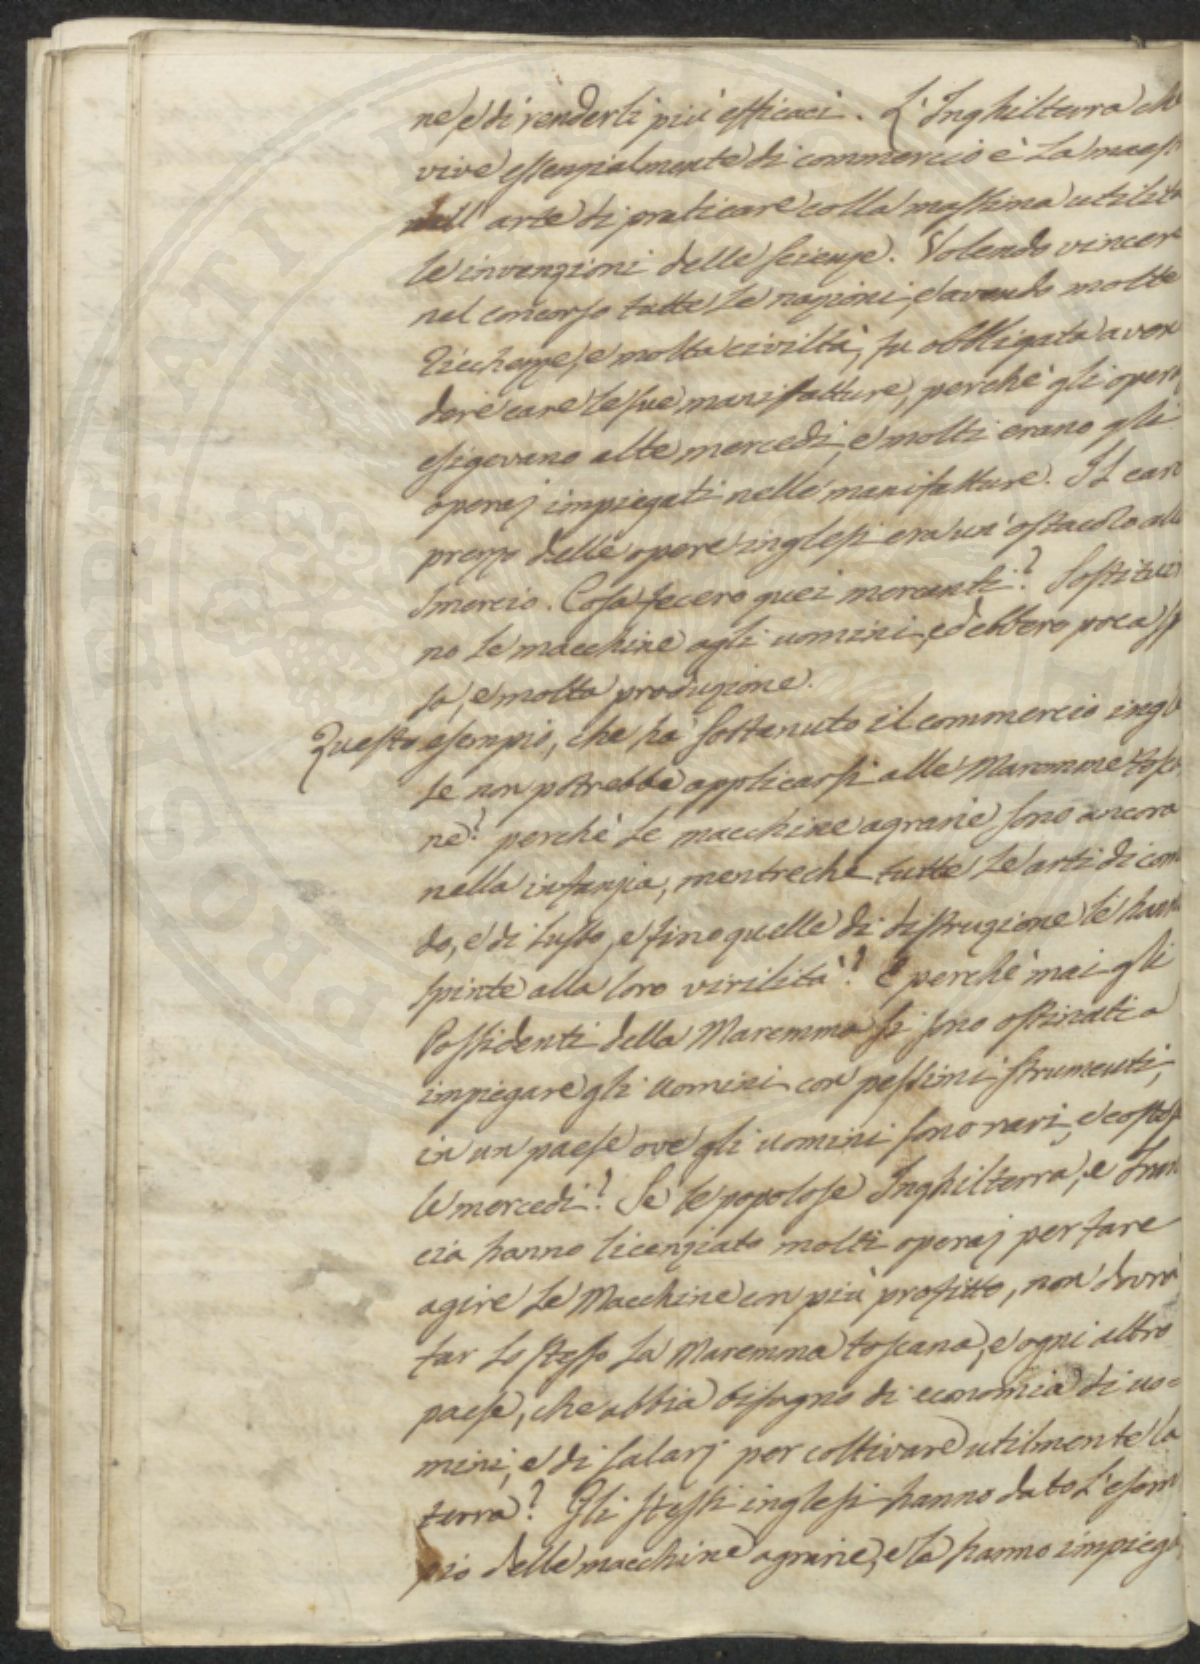 ne, e di renderli più efficaci. L'Inghilterra che
vive essenzialmente di commercio è la maest
dell'arte di praticare colla massima utilità
le invenzioni delle scienze. Volendo vincere
nel concorso tutte le nazioni, e avendo molte
ricchezze, e molta civiltà, fu obbligata a ven
dere care le sue manifatture, perchè gli operaj
esigevano alte mercedi, e molti erano gli
operaj impiegati nelle manifatture. Il caro
prezzo delle opere inglesi era un'ostacolo allo
smercio. Cosa fecero quei mercanti? Sostituiro
no le macchine agli uomini, ed ebbero poca sp
sa, e molta produzione.
Questo esempio, che ha sostenuto il commercio ingle
se non potrebbe applicarsi alle Maremme tosca
ne? perchè le macchine agrarie sono ancora
nella infanzia, mentreche tutte le arti di como
do, e di lusso, e fino quelle di distruzione le hanno
spinte alla loro virilità? E perchè mai gli
Possidenti della Maremma si sono ostinati a
impiegare gli uomini con pessimi strumenti,
in un paese ove gli uomini sono rari, e costose
le mercedi? Se le popolose Inghilterra, e Fran
cia hanno licenziato molti operaj per fare
agire le Macchine con più profitto, non dovrà
far lo stesso la Maremma toscana, e ogni altro
paese, che abbia bisogno di economia di uo=
mini, e di salarj per coltivare utilmente la
terra? Gli stessi inglesi hanno dato l'esem
pio delle macchine agrarie, e le hanno impieg
PROSPERITATI